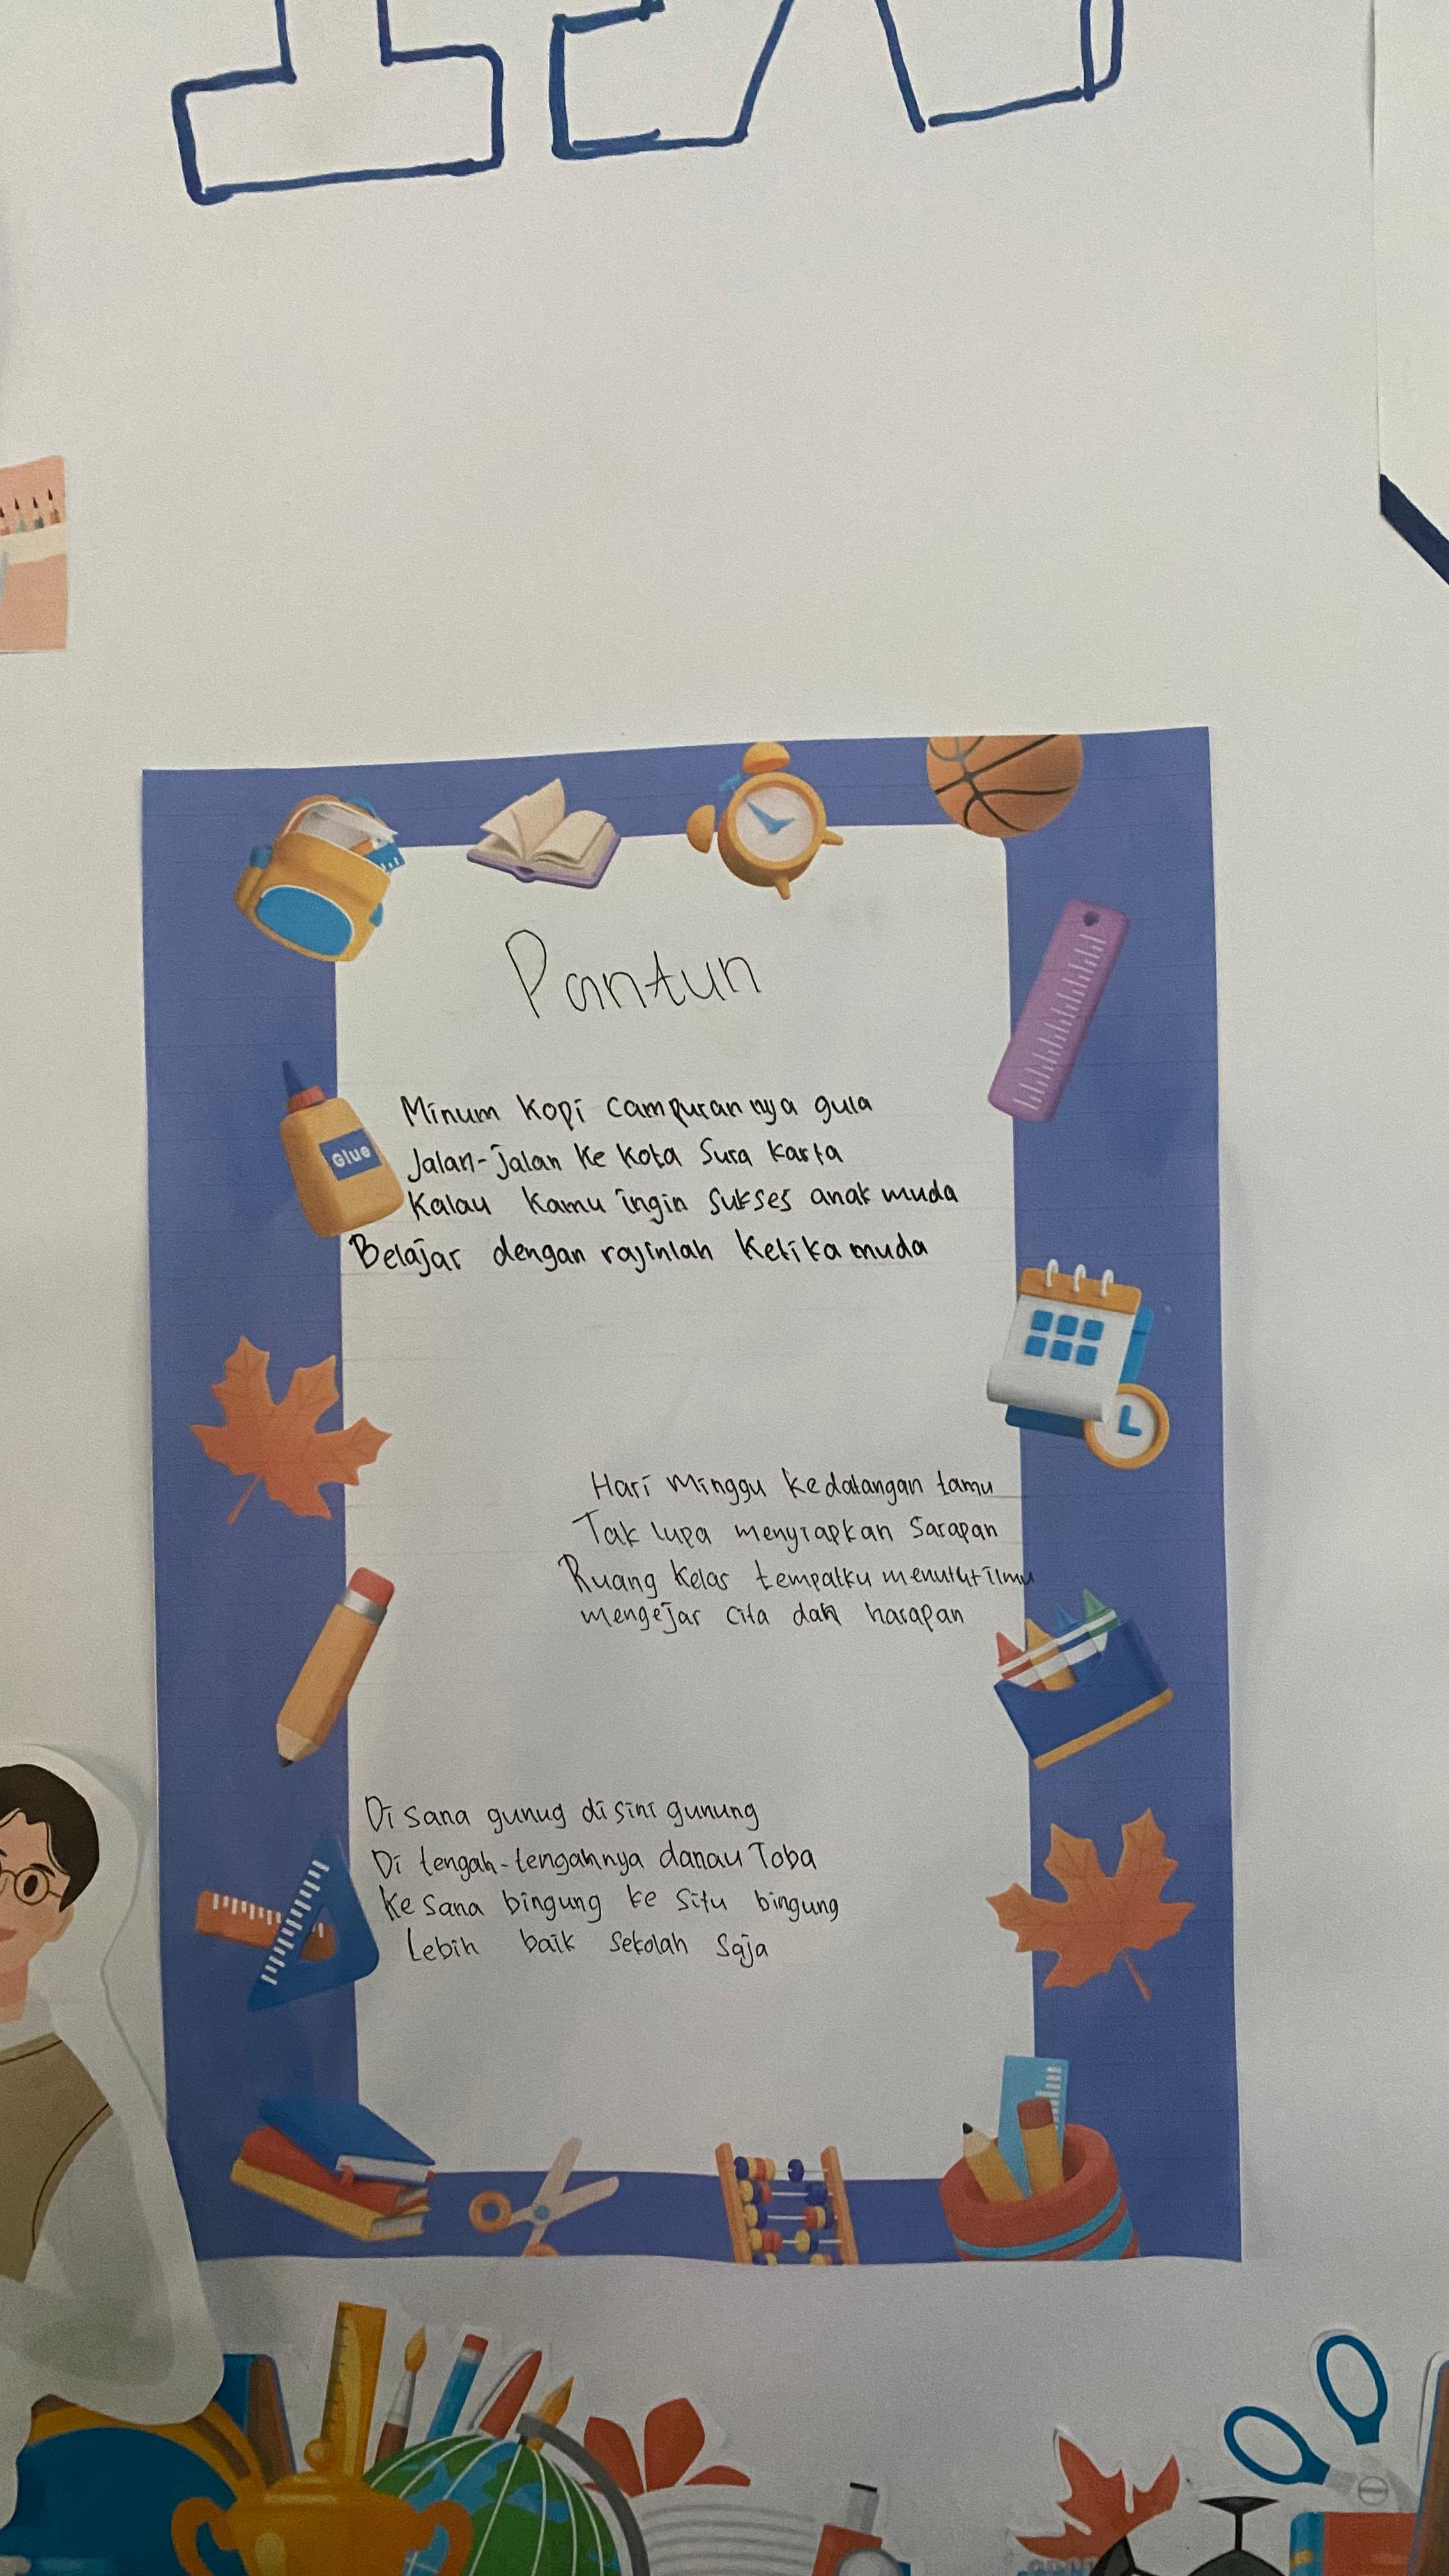 Pantun
Minum kopi campurannya gula
Jalan-jalan ke kota Sura karta
Kalau kamu ingin sukses anak muda
Belajar dengan rajinlah ketika muda
Hari Minggu kedatangan tamu
Tak lupa menyiapkan Sarapan
Ruang kelas tempatku menutut ilmu
mengejar cita dan harapan
Di sana gunug disini gunung
Di tengah-tengahnya danau Toba
Ke sana bingung ke situ bingung
Lebih baik sekolah saja
Glue